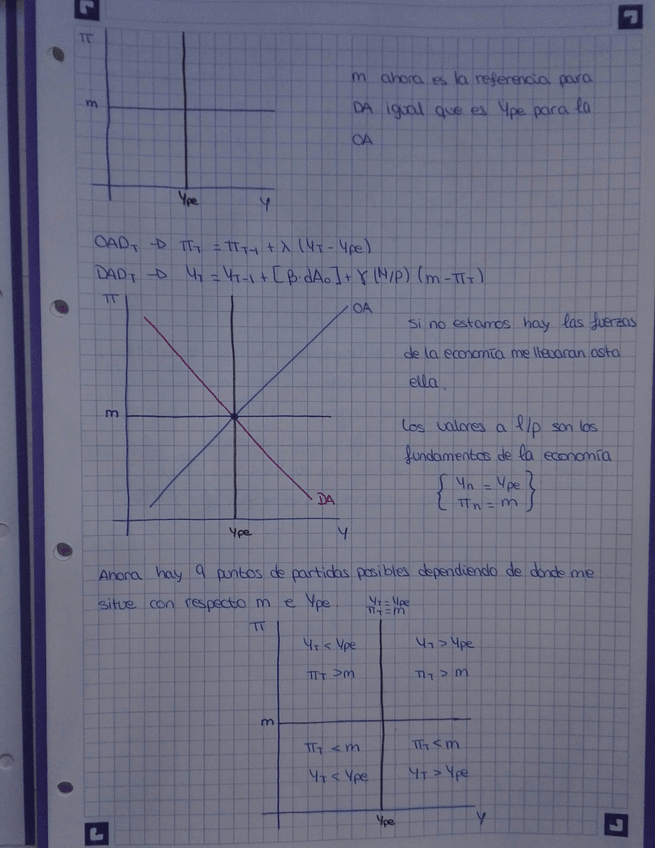 π
m ahora es la referencia para
m
DA igual que es Ype para la
OA
Ype
Y
OAD_T → π_T = π_T-1 + λ (Y_T - Ype)
DAD_T → Y_T = Y_T-1 + [β·dA₀] + γ (M/P) (m - π_T)
π
OA
si no estamos hay las fuerzas
de la economía me llevaran asta
ella.
m
Los valores a l/p son los
fundamentos de la economía
{ Yn = Ype }
{ πn = m }
DA
Ype
Y
Ahora hay 9 puntos de partidas posibles dependiendo de donde me
situe con respecto m e Ype.
Y_T = Ype
π_T = m
π
Y_T < Ype
Y_T > Ype
π_T > m
π_T > m
m
π_T < m
π_T < m
Y_T < Ype
Y_T > Ype
Ype
Y